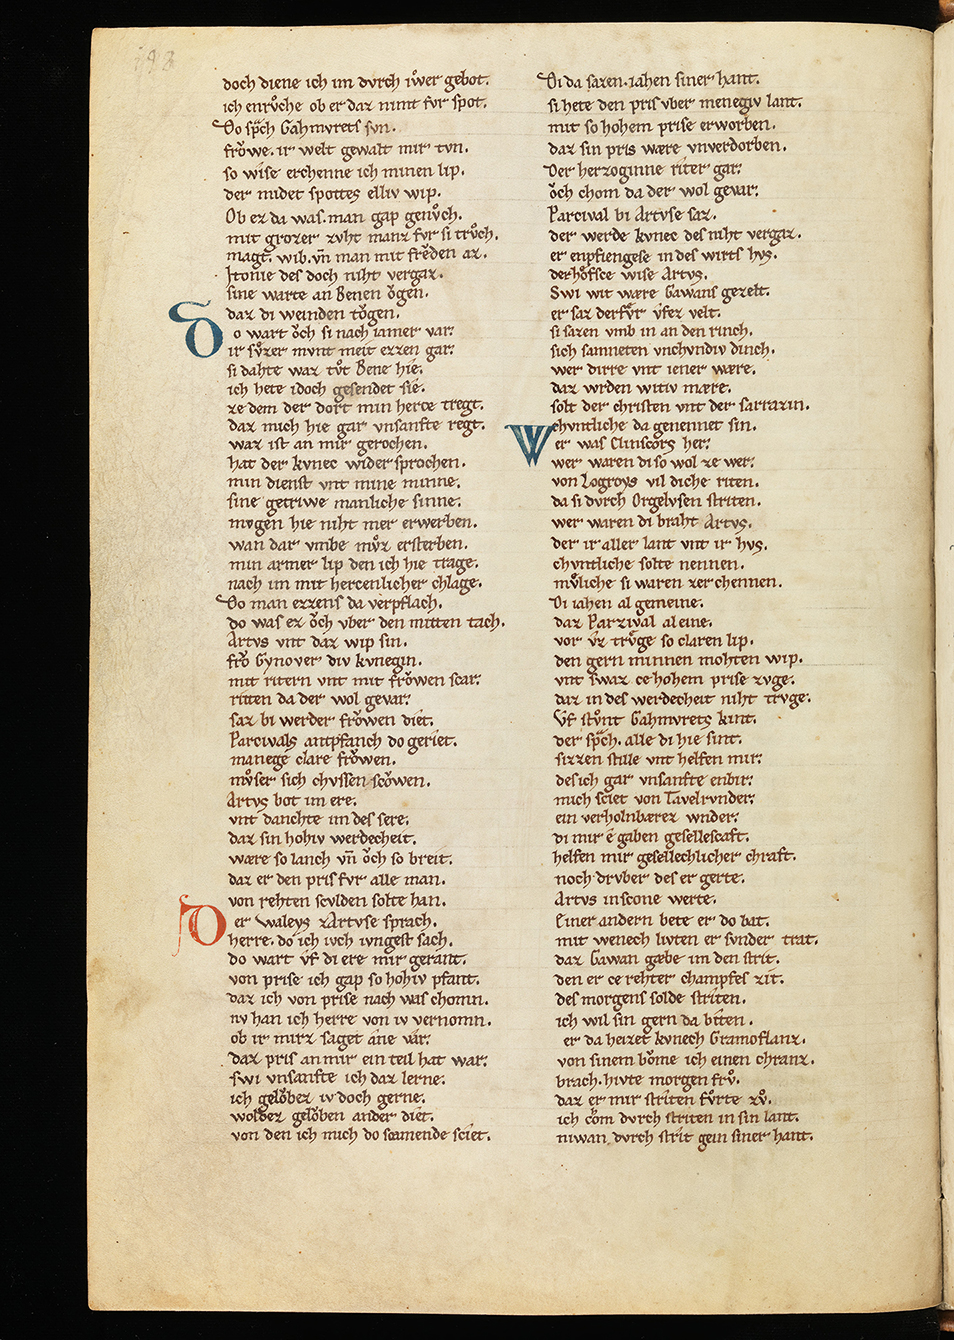 193
doch diene ich im dvrch iwͤer gebot.
ich enrvͦche ob er daz nimt fvr spot.
Do spͣch Gahmvrets svn.
frowͤe. ir welt gewalt mir tvn.
so wise erchenne ich minen lip.
der midet spottes elliv wip.
Ob ez da was. man gap genvͦch.
mit grozer zvht manz fvr si trvͦch.
magt. wib. vn̄ man mit frevͤden az.
Jtonie des doch niht vergaz.
sine warte an Benen oͮgen.
daz di weinden toͮgen.
Do wart oͮch si nach iamer var.
ir svͦzer mvnt meit ezzen gar.
si dahte waz tvͦt Bene hie.
ich hete idoch gesendet sie.
ze dem der dort min herce tregt.
daz mich hie gar vnsanfte regt.
waz ist an mir gerochen.
hat der kvnec widersprochen.
min dienst vnt mine minne.
sine getriwe manliche sinne.
mvgen hie niht mer erwerben.
wan dar vmbe mvͦz ersterben.
min armer lip den ich hie trage.
nach im mit hercenlicher chlage.
Do man ezzens da verpflach.
do was ez oͮch vber den mitten tach.
Artvs vnt daz wip sin.
froͮ Gynover div kvnegin.
mit ritern vnt mit froͮwen scar.
ritten da der wol gevar.
saz bi werder froͮwen diet.
Parcivals antpfanch do geriet.
manege clare froͮwen.
mvͦser sich chvssen scoͮwen.
Artvs bot im ere.
vnt danchte im des sere.
daz sin hohiv werdecheit.
wære so lanch vn̄ oͮch so breit.
daz er den pris fvr alle man.
von rehten scvlden solte han.
Der Waleys zArtvse sprach.
herre. do ich ivch ivngest sach.
do wart vf di ere mir gerant.
von prise ich gap so hohiv pfant.
daz ich von prise nach was chomn.
nv han ich herre von iv vernomn.
ob ir mirz saget ane var.
daz pris an mir ein teil hat war.
swi vnsanfte ich daz lerne.
ich geloͮbez iv doch gerne.
woldez geloͮben ander diet.
von den ich mich do scamende sciet.
Di da sazen. iahen siner hant.
si hete den pris vber menegiv lant.
mit so hohem prise erworben.
daz sin pris wære vnverdorben.
Der herzoginne riter gar.
oͮch chom da der wol gevar.
Parcival bi Artvse saz.
der werde kvnec des niht vergaz.
er enpfiengese in des wirts hvs.
der hoͤfsce wise Artvs.
Swi wit wære Gawans gezelt.
er saz derfvͤr vfez velt.
si sazen vmb in an den rinch.
sich samneten vnchvndiv dinch.
wer dirre vnt iener wære.
daz wrden witiv mære.
solt der christen vnt der sarrazin.
chvntliche da genennet sin.
Wer was Clinscors her.
wer waren di so wol ze wer.
von Logroys vil diche riten.
da si dvrch Orgelvsen striten.
wer waren di braht Artvs.
der ir aller lant vnt ir hvs.
chvntliche solte nennen.
mvͤliche si waren zerchennen.
Di iahen al gemeine.
daz Parzival al eine.
vor vz trvͤge so claren lip.
den gern minnen mohten wip.
vnt swaz ce hohem prise zvge.
daz in des werdecheit niht trvge.
Vf stvͦnt Gahmvrets kint.
der spͣch. alle di hie sint.
sizzen stille vnt helfen mir.
des ich gar vnsanfte enbir.
mich sciet von Tavelrvnder.
ein verholnbærez wnder.
di mir e gaben gesellescaft.
helfen mir gesellechlicher chraft.
noch drvber des er gerte.
Artvs in scone werte.
Einer andern bete er do bat.
mit wenech livten er svnder trat.
daz Gawan gæbe im den strit.
den er ce rehter champfes zit.
des morgens solde striten.
ich wil sin gern da biten.
er da heizet kvnech Gramoflanz.
von sinem boͮme ich einen chranz.
brach. hivte morgen frvͦ.
daz er mir striten fvͦrte zvͦ.
ich chom dvrch striten in sin lant.
niwan dvrch strit gein siner hant.